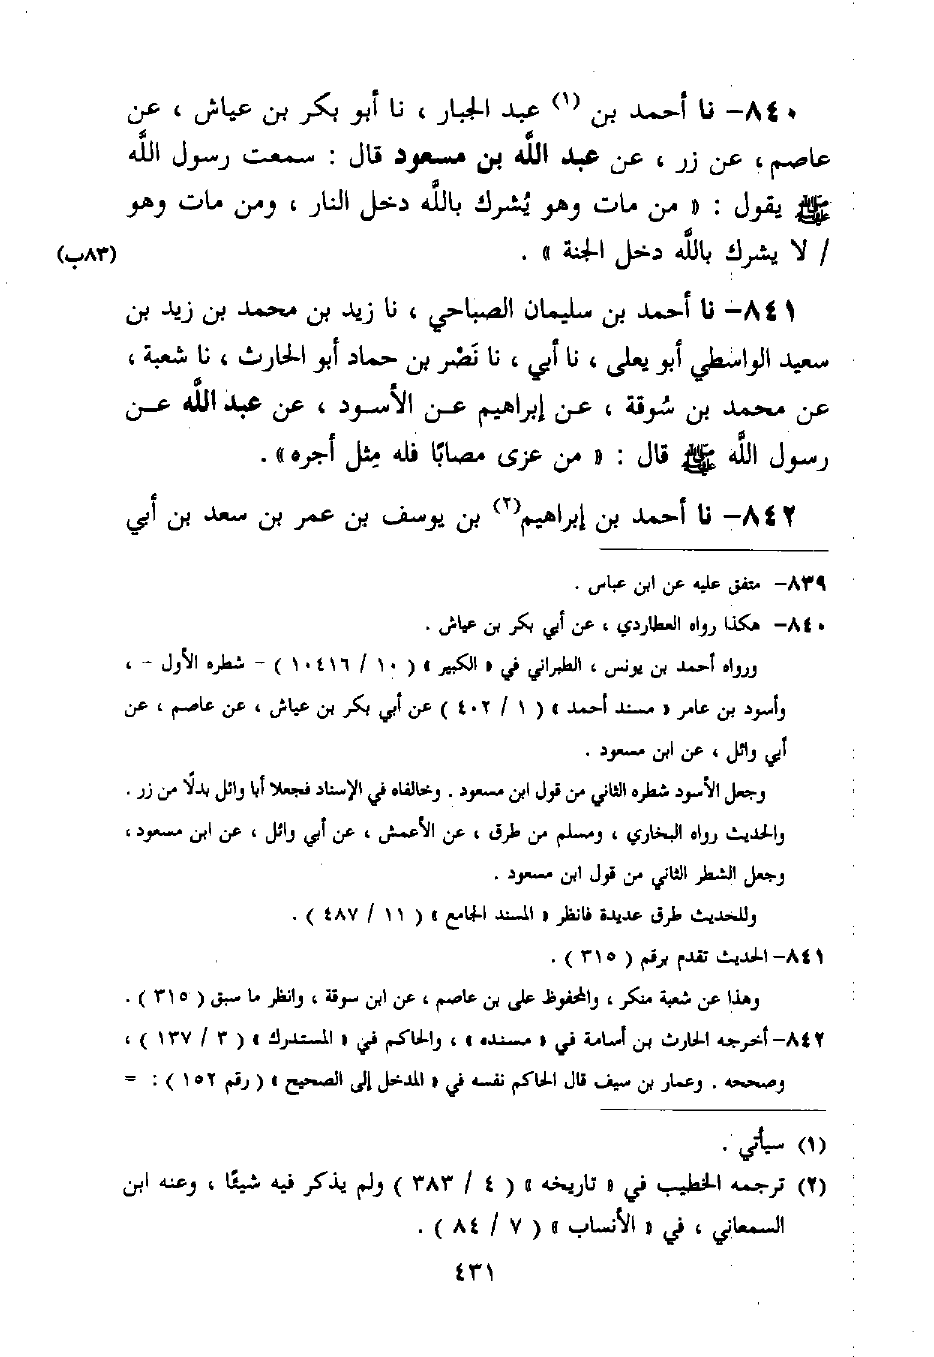 ٨٤٠- نا أحمد بن (١) عبد الجبار ، نا أبو بكر بن عياش ، عن
عاصم ، عن زر ، عن عبد اللَّه بن مسعود قال : سمعت رسول اللَّه
ﷺ يقول : « من مات وهو يُشرك باللَّه دخل النار ، ومن مات وهو
/ لا يشرك باللَّه دخل الجنة » . (٨٣ب)
٨٤١- نا أحمد بن سليمان الصباحي ، نا زيد بن محمد بن زيد بن
سعيد الواسطي أبو يعلى ، نا أبي ، نا نَصْر بن حماد أبو الحارث ، نا شعبة ،
عن محمد بن سُوقة ، عن إبراهيم عن الأسود ، عن عبد اللَّه عن
رسول اللَّه ﷺ قال : « من عزى مصابًا فله مِثل أجره» .
٨٤٢- نا أحمد بن إبراهيم(٢) بن يوسف بن عمر بن سعد بن أبي
٨٣٩- متفق عليه عن ابن عباس .
٨٤٠- هكذا رواه العطاردي ، عن أبي بكر بن عياش .
ورواه أحمد بن يونس ، الطبراني في « الكبير » ( ١٠ / ١٠٤١٦ ) - شطره الأول - ،
وأسود بن عامر « مسند أحمد » ( ١ / ٤٠٢ ) عن أبي بكر بن عياش ، عن عاصم ، عن
أبي وائل ، عن ابن مسعود .
وجعل الأسود شطره الثاني من قول ابن مسعود . وخالفاه في الإسناد فجعلا أبا وائل بدلًا من زر .
والحديث رواه البخاري ، ومسلم من طرق ، عن الأعمش ، عن أبي وائل ، عن ابن مسعود ،
وجعل الشطر الثاني من قول ابن مسعود .
وللحديث طرق عديدة فانظر « المسند الجامع » ( ١١ / ٤٨٧ ) .
٨٤١- الحديث تقدم برقم ( ٣١٥ ) .
وهذا عن شعبة منكر ، والمحفوظ على بن عاصم ، عن ابن سوقة ، وانظر ما سبق ( ٣١٥ ) .
٨٤٢- أخرجه الحارث بن أسامة في « مسنده » ، والحاكم في « المستدرك » ( ٣ / ١٣٧ ) ،
وصححه . وعمار بن سيف قال الحاكم نفسه في « المدخل إلى الصحيح » ( رقم ١٥٢ ) : =
(١) سيأتي .
(٢) ترجمه الخطيب في « تاريخه » ( ٤ / ٣٨٣ ) ولم يذكر فيه شيئًا ، وعنه ابن
السمعاني ، في « الأنساب » ( ٧ / ٨٤ ) .
٤٣١